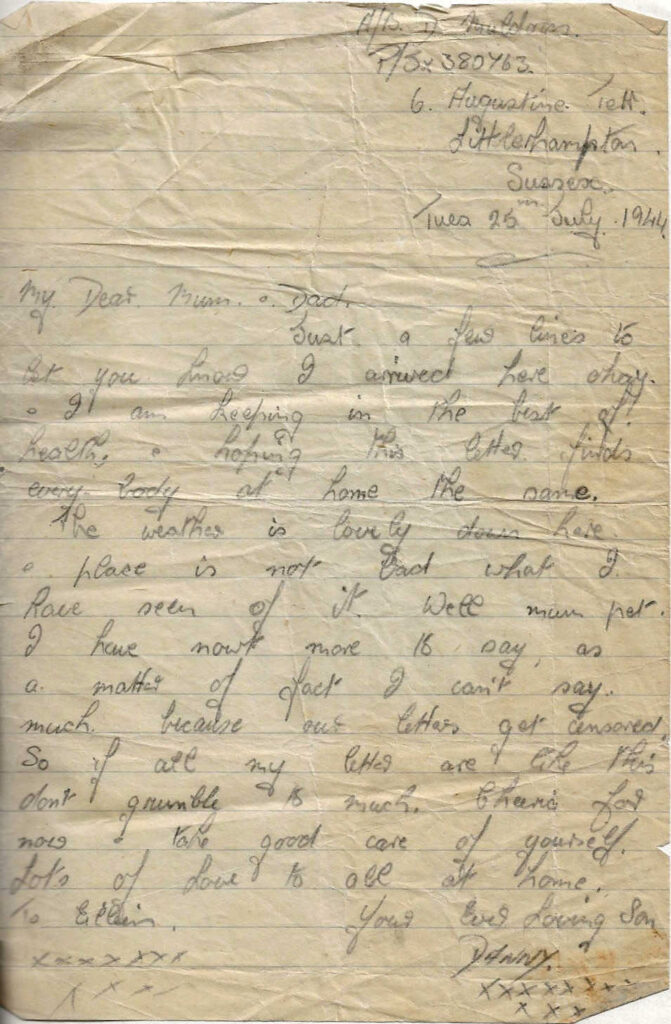 A/B. D. Muldown.
P/Jx 380763.
6. Augustine Terr.
Littlehampton.
Sussex.
Tues 25th July. 1944
My Dear Mum. & Dad.
Just a few lines to
let you know I arrived here okay.
& I am keeping in the best of
health, & hoping this letter finds
every body at home the same.
The weather is lovely down here
& place is not bad what I
have seen of it. Well mum pet.
I have nowt more to say, as
a matter of fact I can't say.
much. because our letters get censored.
So if all my letter are like this
don't grumble to much. Cheerio for
now & take good care of yourself.
Lots of love to all at home.
To Eileen. Your Ever Loving Son
xxxxxxxx DANNY.
xxxx xxxxxxxx
xxx